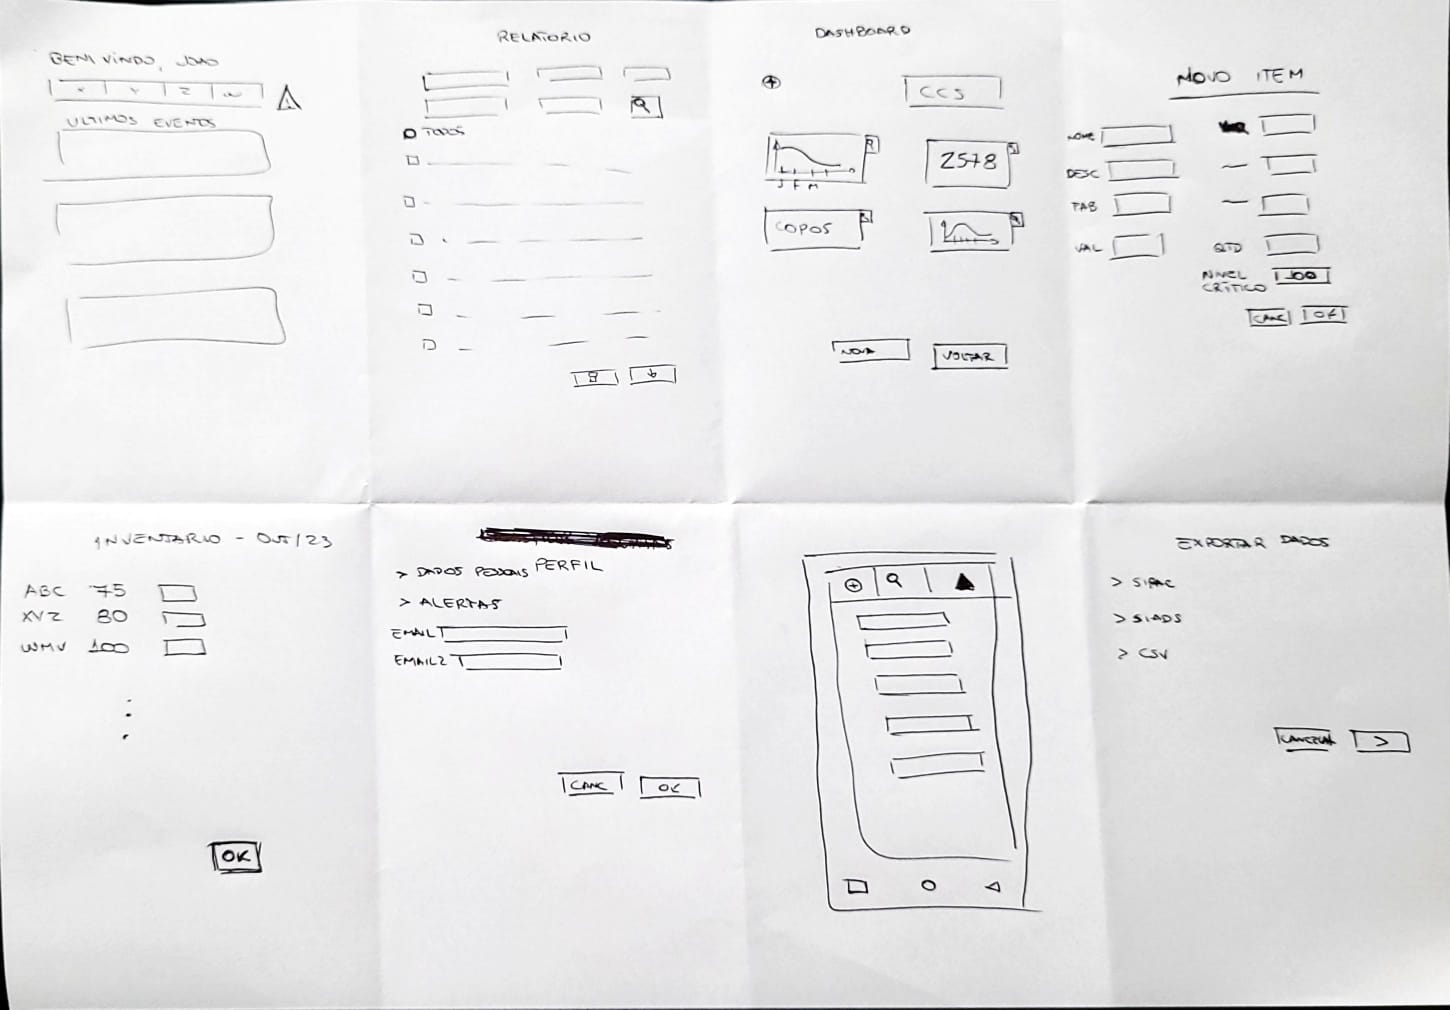 BEM VINDO, JOAO
ULTIMOS EVENTOS
RELATORIO
TODOS
DASHBOARD
CCS
J F M
2578
COPOS
NOVA
VOLTAR
NOVO ITEM
NOME
DESC
TAB
VAL
QTD
NIVEL
CRÍTICO
100
CANC
OK
INVENTARIO - OUT/23
ABC 75
XYZ 80
WMV 100
OK
PERFIL
> DADOS PESSOAIS
> ALERTAS
EMAIL
EMAIL2
CANC
OK
EXPORTAR DADOS
> SIPAC
> SIADS
> CSV
CANCELAR
>